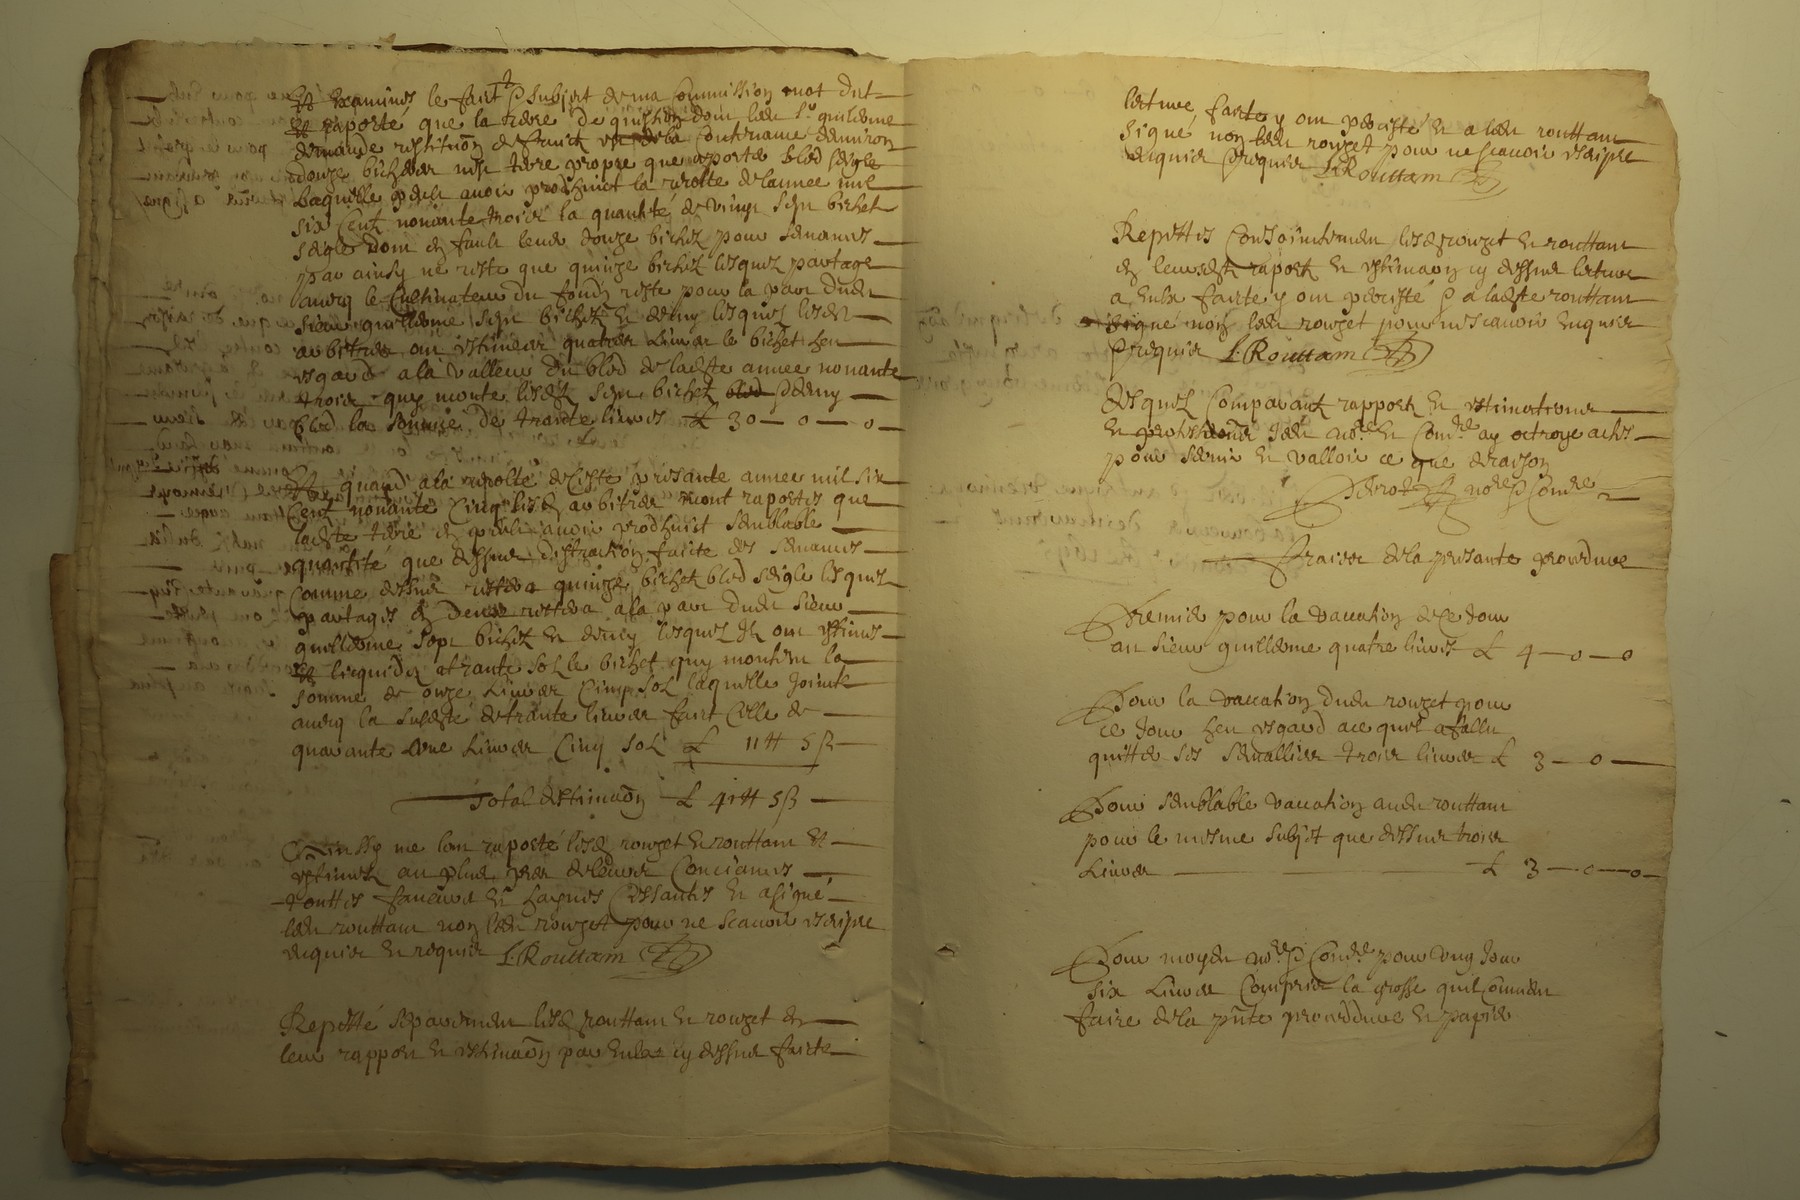 Et Examines le fait & subjet de ma Commission mot dut
Et raporté que la tiere de question dont led. Sr. guilleome
demande restituōn de fruict contenant denviron
douze bichees
Laquelle peult avoir prodhuict la recolte de lannee mil
six Cent nonante troies la quantité de vingt sept bichet
seigle dont en fault lever douze bichet pour semances
par ainsy ne reste que quinze bichet lesquel partage
avecq le Cultivateur du fondz reste pour la part dudit
sieur guilleome sept bichet et demy lesquel lesdit
arbitres ont estimees quatres Livres le bichet heu
esgard a la valleur du bled de ladite annee nonante
troies quy monte lesdit sept bichet & demy
bled la somme de trante livres £ 30—0—0
Et quand a la recolte de ceste presante annee mil six
Cent nonante Cinq lesd. arbitres mont raportes que
ladite tiere en peult avoir prodhuict semblable
quantité que dessus distraction faicte des semances
comme dessus restera quinze bichet bled seigle lesquel
partages en deux restera a la part dudit sieur
guilleome sept bichet et demy lesquel ilz ont estimes
Et liquides a trante sol le bichet quy montent la
somme de onze Livres Cinq sol laquelle jointe
avecq la susdite de trante livres fait Celle de
quarante une Livres Cinq sol £ 11tt 5ß
Total destimaōn £ 41tt 5ß
Ainssy me lont raporté lesd. rouget et routtam et
estimes au plus pres de leurs Conciances
touttes faveurs et haynes Cessantes et a signé
led. routtam non led. rouget pour ne scavoir escripre
enquier et requier L. Routtam
Repetté separement lesd. routtam et rouget en
leur rapport et estimaōn par eulx cy dessus faicte
lecture faite y ont persisté et a led. routtam
signé non led. rouget pour ne scavoir escripre
enquier & requier L. Routtam
Repettes Conjoinctement lesd. rouget et routtam
en leursdit raport et estimaōn cy dessus lecture
a eulx faicte y ont persisté & a ladite routtam
signé non led. rouget pour ne scavoir enquier
& requier L. Routtam
Desquelz Comparant rapport et estimations
et Je dit nore. et Comre. ay octroye actes
pour servir et valloir ce que de raison
nore. & Comre.
Fraies de la presante procedure
Premier pour la vaccation de ce Jour
au sieur guilleome quatre livres £ 4—0—0
Pour la vaccation dudit rouget pour
ce Jour heu esgard a ce quil a fallu
quitter ses troies livres £ 3—0
Pour semblable vaccation audit routtam
pour le mesme subjet que dessus troies
Livres £ 3—0—0
Pour moydit nore. & Comre. pour ung Jour
six Livres Compris la grosse quil convient
faire de la pnte procedure et papier